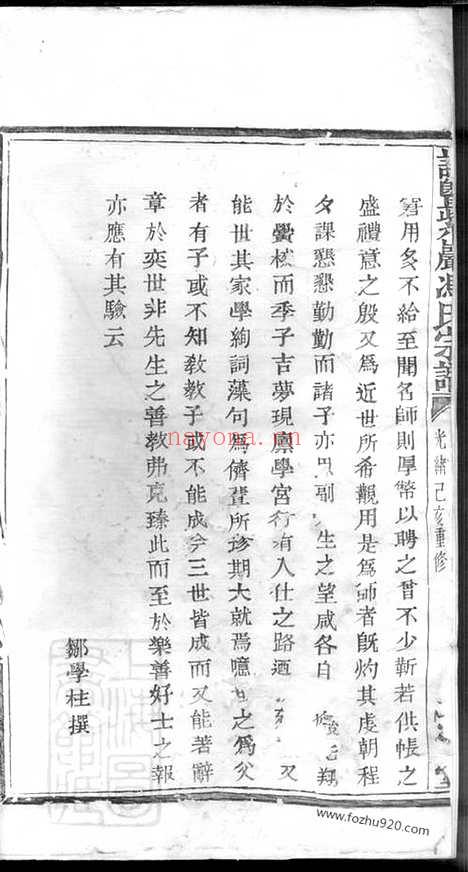 諸暨 馮氏宗譜
光緒己亥重修
窘用多不給至聞名師則厚幣以聘之曾不少靳若供帳之
盛禮意之殷又為近世所希覯用是為師者旣灼其虔朝程
夕課懇懇勤勤而諸子亦 副 生之望咸各自 翔
於黌 而季子吉夢現廪學宮行有入仕之路 又
能世其家學絢詞藻句為儕輩所 期大就焉噫 之為父
者有子或不知敎敎子或不能成 三世皆成而又能著辭
章於奕世非先生之善教弗克臻此而至於樂善好士之報
亦應有其驗云
鄒學柱撰
nayona.cn
www.fozhu920.com